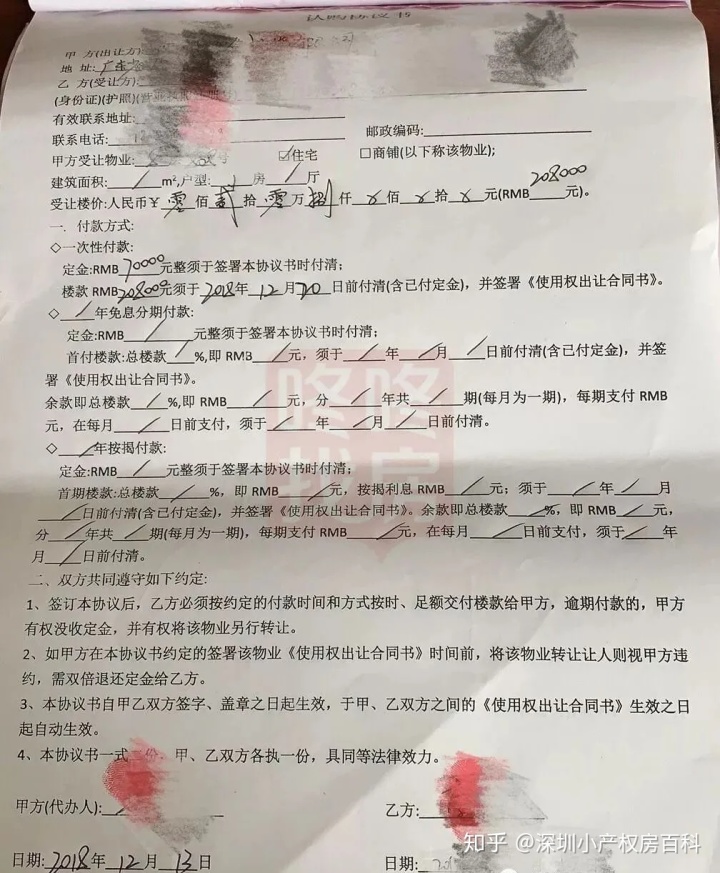 认购协议书
甲 方(出让方)
地 址:广东省
乙 方(受让方)
(身份证)(护照)
有效联系地址:
联系电话: 邮政编码:
甲方受让物业: 号 ☑住宅 □商铺(以下称该物业);
建筑面积: / m²,户型: 1 房 / 厅
受让楼价:人民币¥ 零 佰 贰 拾 零 万 捌 仟 x 佰 x 拾 x 元(RMB 208000 元)。
一. 付款方式:
◇一次性付款:
定金:RMB 70000 元整须于签署本协议书时付清;
楼款 RMB 208000 元须于 2018 年 12 月 20 日前付清(含已付定金)，并签署《使用权出让合同书》。
◇ / 年免息分期付款:
定金:RMB / 元整须于签署本协议书时付清;
首付楼款:总楼款 / %,即 RMB / 元，须于 / 年 / 月 / 日前付清(含已付定金)，并签
署《使用权出让合同书》。
余款即总楼款 / %,即 RMB / 元，分 / 年共 / 期(每月为一期)，每期支付 RMB
元，在每月 / 日前支付，须于 / 年 / 月 / 日前付清。
◇ / 年按揭付款:
定金:RMB / 元整须于签署本协议书时付清;
首期楼款:总楼款 / %，即 RMB / 元，按揭利息 RMB / 元；须于 / 年 / 月
/ 日前付清(含已付定金)，并签署《使用权出让合同书》。余款即总楼款 / %，即 RMB / 元，
分 / 年共 / 期(每月为一期)，每期支付 RMB / 元，在每月 / 日前支付，须于 / 年
月 / 日前付清。
二、双方共同遵守如下约定:
1、签订本协议后，乙方必须按约定的付款时间和方式按时、足额交付楼款给甲方，逾期付款的，甲方
有权没收定金，并有权将该物业另行转让。
2、如甲方在本协议书约定的签署该物业《使用权出让合同书》时间前，将该物业转让让人则视甲方违
约，需双倍退还定金给乙方。
3、本协议书自甲乙双方签字、盖章之日起生效，于甲、乙双方之间的《使用权出让合同书》生效之日
起自动生效。
4、本协议书一式 份，甲、乙双方各执一份，具同等法律效力。
甲方(代办人): 乙方:
日期: 2018 年 12 月 13 日 日期: 20
咚咚找房
知乎 @深圳小产权房百科